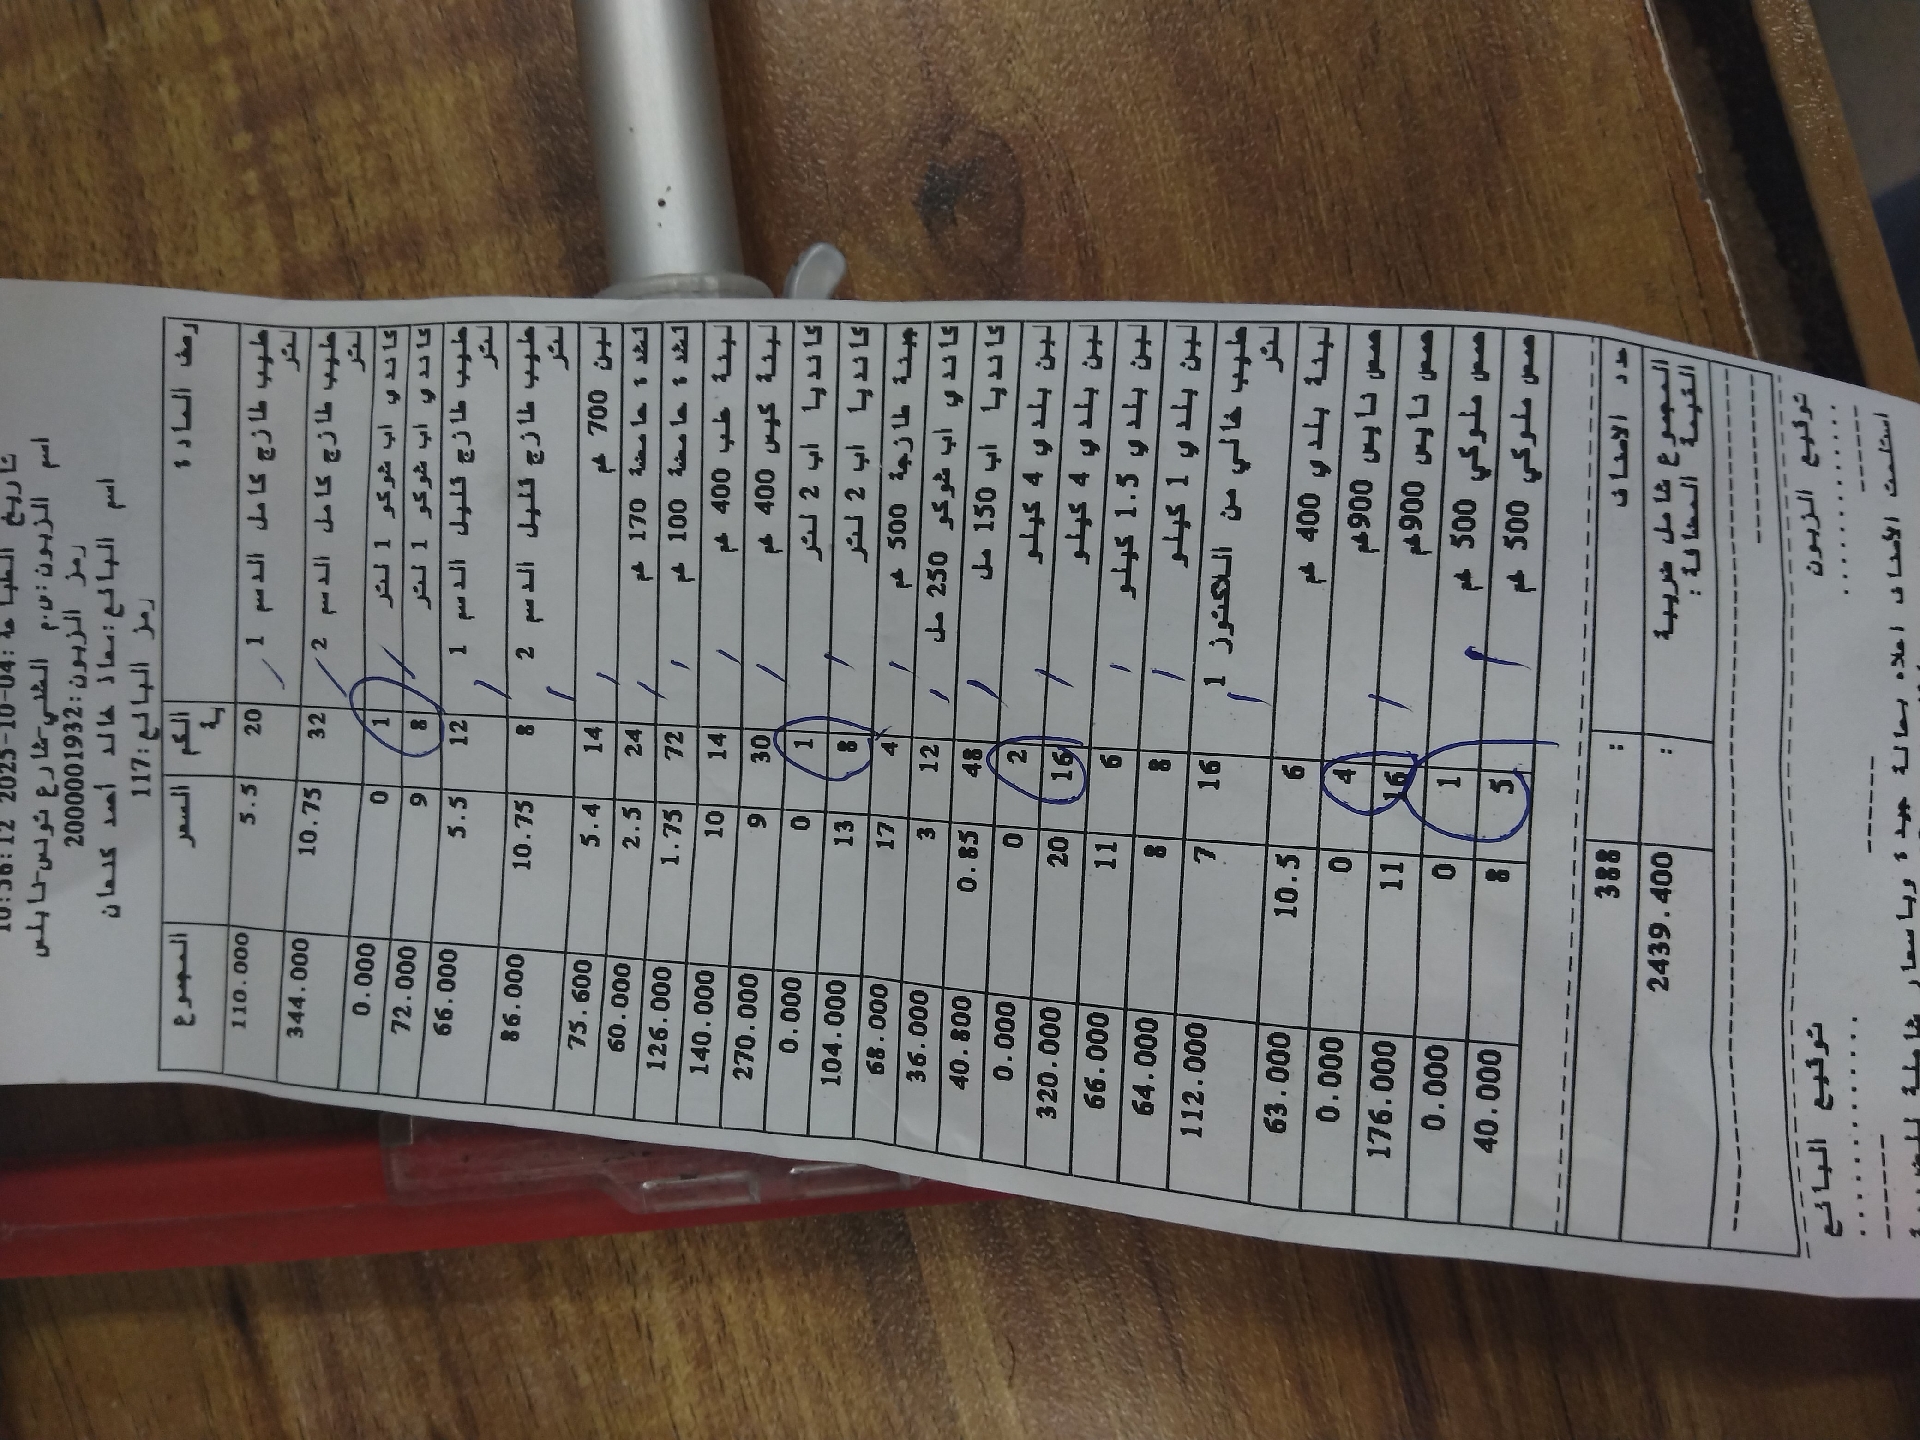 10:58:12 2025-10-04: تاريخ الطباعة
اسم الزبون:س.م الشلبي-شارع تونس-نابلس
رمز الزبون:2000001932
اسم البائع:سعاد خالد احمد كلعان
رمز البائع:117
وصف المادة الكمية السعر المجموع
حليب طازج كامل الدسم 1 لتر 20 5.5 110.000
حليب طازج كامل الدسم 2 لتر 32 10.75 344.000
كاندي اب شوكو 1 لتر 1 0 0.000
كاندي اب شوكو 1 لتر 8 9 72.000
حليب طازج قليل الدسم 1 لتر 12 5.5 66.000
حليب طازج قليل الدسم 2 لتر 8 10.75 86.000
لبن 700 غم 14 5.4 75.600
قشدة حامضة 170 غم 24 2.5 60.000
قشدة حامضة 100 غم 72 1.75 126.000
لبنة علب 400 غم 14 10 140.000
لبنة كيس 400 غم 30 9 270.000
كانديا اب 2 لتر 1 0 0.000
كانديا اب 2 لتر 8 13 104.000
جبنة طازجة 500 غم 4 17 68.000
كاندي اب شوكو 250 مل 12 3 36.000
كانديا اب 150 مل 48 0.85 40.800
لبن بلدي 4 كيلو 2 0 0.000
لبن بلدي 4 كيلو 16 20 320.000
لبن بلدي 1.5 كيلو 6 11 66.000
لبن بلدي 1 كيلو 8 8 64.000
حليب خالي من اللاكتوز 1 لتر 16 7 112.000
لبنة بلدي 400 غم 6 10.5 63.000
حمص نابس 900غم 4 0 0.000
حمص نابس 900غم 16 11 176.000
حمص ملوكي 500 غم 1 0 0.000
حمص ملوكي 500 غم 5 8 40.000
عدد الاصناف : 388
المجموع شامل ضريبة القيمة المضافة: : 2439.400
توقيع الزبون توقيع البائع
استلمت الاصناف اعلاه بحالة جيدة وباسعار شاملة للضريبة